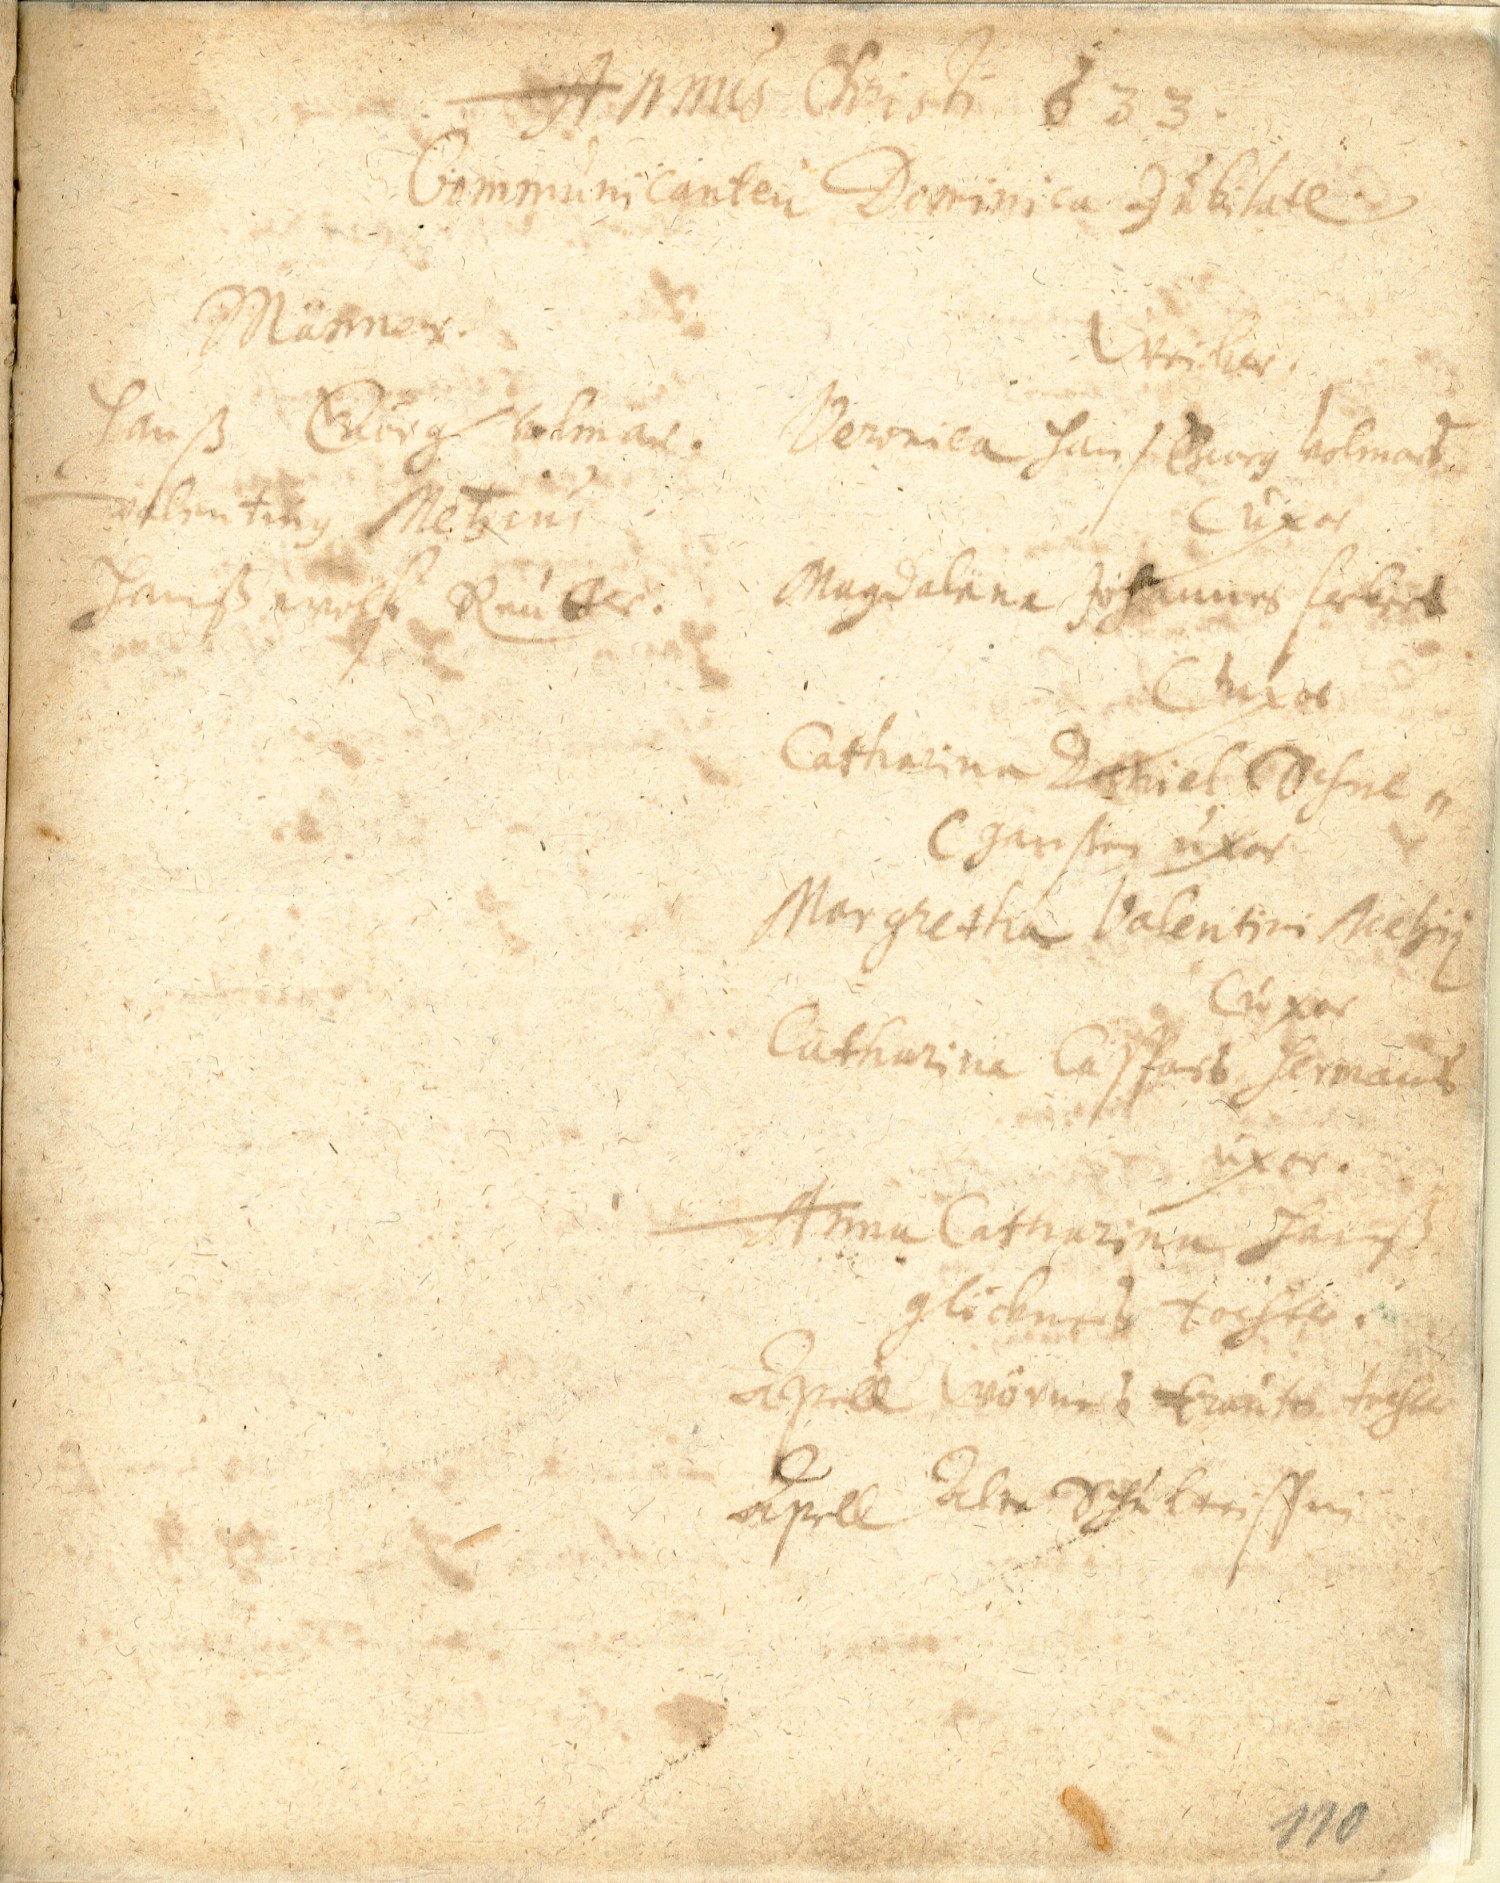 Annus Christi 633.
Communicanten Dominica Jubilate
Männer.
Hanß Georg Volmar.
Valentinus Metzius
Hanß Wolff Reutter.
Weiber.
Veronica Hanß Georg Volmars
uxor
Magdalena Johannes
uxor
Catharina Daniel Schne„
uxor
Margretha Valentini Metzij
uxor
Catharina Caspars Hermans
uxor.
Anna Catharina Hanß
glöckners tochter.
Apell Wörners tochter
Apell Alte Schulteissin
110